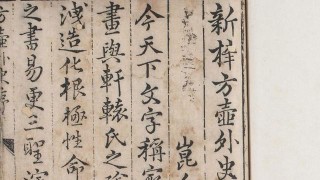 新鋟方壺外史
崑
今天下文字稱
畫與軒轅氏之
洩造化根極性命
之書易更三聖
方壺外史